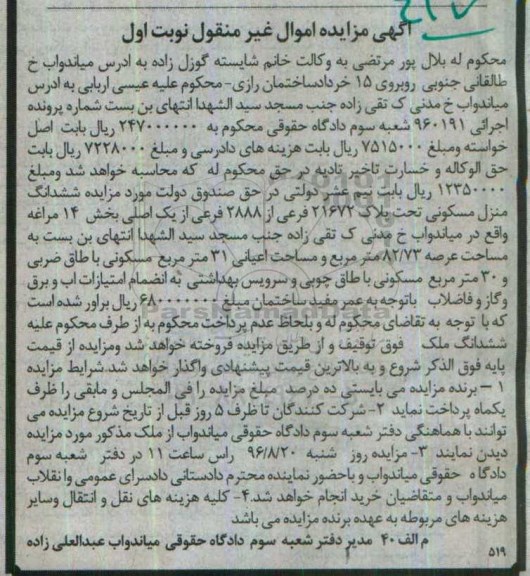 آگهی مزایده اموال غیر منقول نوبت اول
محکوم له بلال پور مرتضی به وکالت خانم شایسته گوزل زاده به ادرس میاندواب خ
طالقانی جنوبی روبروی ۱۵ خردادساختمان رازی- محکوم علیه عیسی اربابی به ادرس
میاندواب خ مدنی ک تقی زاده جنب مسجد سید الشهدا انتهای بن بست شماره پرونده
اجرائی ۹۶۰۱۹۱ شعبه سوم دادگاه حقوقی محکوم به ۲۴۷۰۰۰۰۰۰ ریال بابت اصل
خواسته ومبلغ ۷۵۱۵۰۰۰ ریال بابت هزینه های دادرسی و مبلغ ۷۲۲۸۰۰۰ ریال بابت
حق الوکاله و خسارت تاخیر تادیه در حق محکوم له که محاسبه خواهد شد ومبلغ
۱۲۳۵۰۰۰۰ ریال بابت نیم عشر دولتی در حق صندوق دولت مورد مزایده ششدانگ
منزل مسکونی تحت پلاک ۲۱۶۷۲ فرعی از ۲۸۸۸ فرعی از یک اصلی بخش ۱۴ مراغه
واقع در میاندواب خ مدنی ک تقی زاده جنب مسجد سید الشهدا انتهای بن بست به
مساحت عرصه ۸۲/۷۳ متر مربع و مساحت اعیانی ۳۱ متر مربع مسکونی با طاق ضربی
و ۳۰ متر مربع مسکونی با طاق چوبی و سرویس بهداشتی به انضمام امتیازات اب و برق
وگاز و فاضلاب باتوجه به عمر مفید ساختمان مبلغ ۶۸۰۰۰۰۰۰۰ ریال براور شده است
که با توجه به تقاضای محکوم له و بلحاظ عدم پرداخت محکوم به از طرف محکوم علیه
ششدانگ ملک فوق توقیف و از طریق مزایده فروخته خواهد شد ومزایده از قیمت
پایه فوق الذکر شروع و به بالاترین قیمت پیشنهادی واگذار خواهد شد.شرایط مزایده
۱– برنده مزایده می بایستی ده درصد مبلغ مزایده را فی المجلس و مابقی را ظرف
یکماه پرداخت نماید ۲- شرکت کنندگان تا ظرف ۵ روز قبل از تاریخ شروع مزایده می
توانند با هماهنگی دفتر شعبه سوم دادگاه حقوقی میاندواب از ملک مذکور مورد مزایده
دیدن نمایند ۳- مزایده روز شنبه ۹۶/۸/۲۰ راس ساعت ۱۱ در دفتر شعبه سوم
دادگاه حقوقی میاندواب و باحضور نماینده محترم دادستانی دادسرای عمومی وانقلاب
میاندواب و متقاضیان خرید انجام خواهد شد.۴- کلیه هزینه های نقل و انتقال وسایر
هزینه های مربوطه به عهده برنده مزایده می باشد
م الف ۴۰ مدیر دفتر شعبه سوم دادگاه حقوقی میاندواب عبدالعلی زاده
۵۱۹